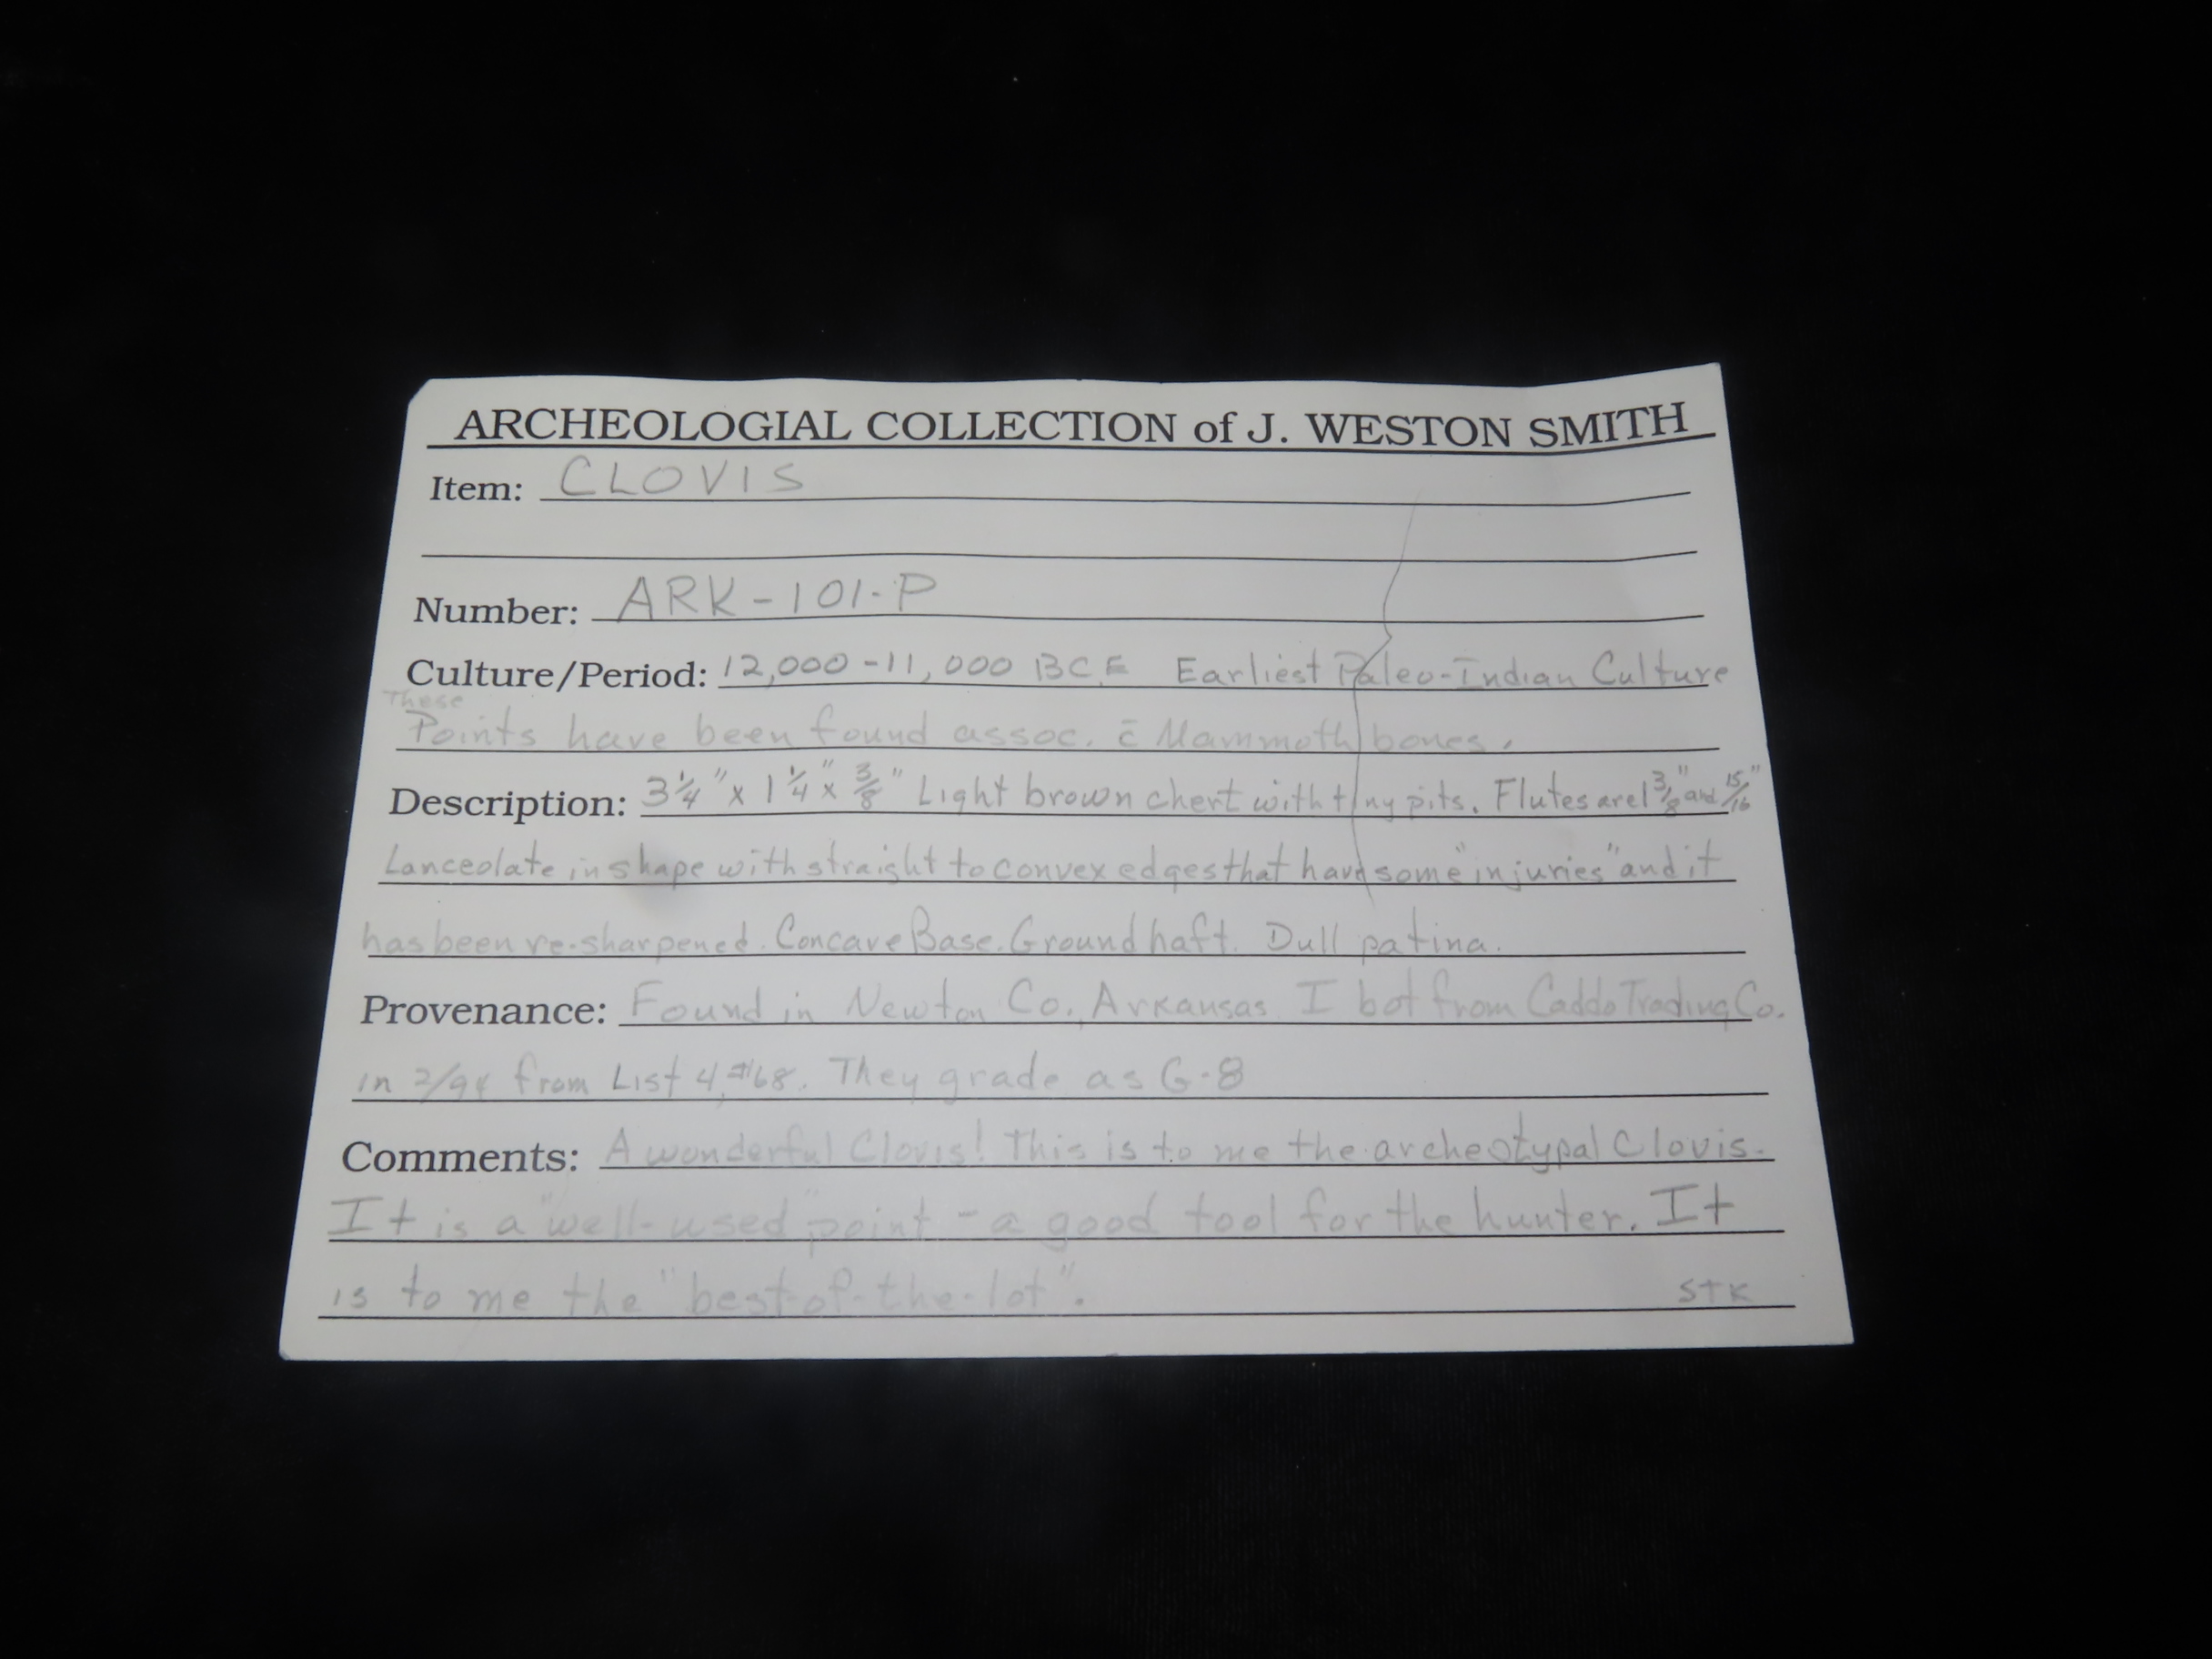 ARCHEOLOGIAL COLLECTION of J. WESTON SMITH
Item: CLOVIS
Number: ARK-101-P
Culture/Period: 12,000-11,000 BCE Earliest Paleo-Indian Culture
These
Points have been found assoc. c̄ Mammoth bones.
Description: 3 1/4" x 1 1/4" x 3/8" Light brown chert with tiny pits. Flutes are 1 3/8" and 15/16"
Lanceolate in shape with straight to convex edges that have some "injuries" and it
has been re-sharpened. Concave Base. Ground haft. Dull patina.
Provenance: Found in Newton Co., Arkansas I bot from Caddo Trading Co.
in 2/94 from List 4, #168. They grade as G-8
Comments: A wonderful Clovis! This is to me the archeotypal Clovis.
It is a "well-used" point - a good tool for the hunter. It
is to me the "best-of-the-lot".
STK